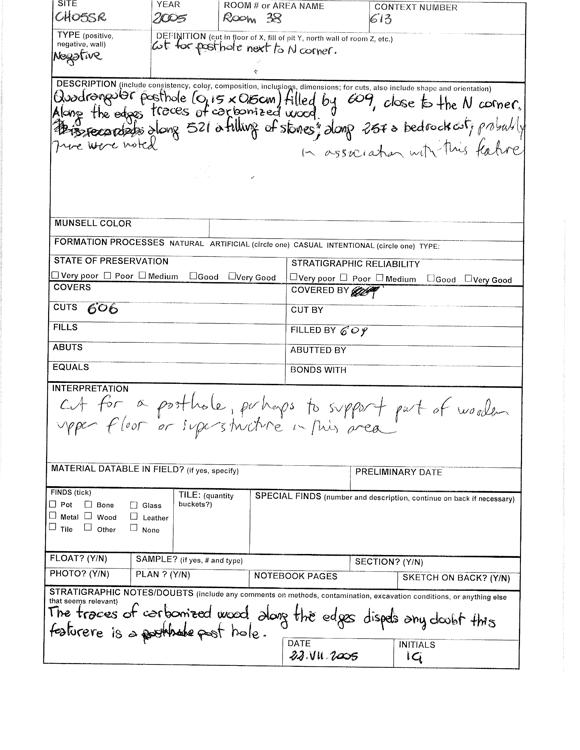 SITE YEAR ROOM # or AREA NAME CONTEXT NUMBER
CHOSSR 2005 Room 38 613
TYPE (positive, negative, wall) DEFINITION (cut in floor of X, fill of pit Y, north wall of room Z, etc.)
Negative Cut for posthole next to N corner.
DESCRIPTION (include consistency, color, composition, inclusions, dimensions; for cuts, also include shape and orientation)
Quadrangular posthole (0,15 x 0,15cm) filled by 609, close to the N corner.
Along the edges traces of carbonized wood.
along 521 a filling of stones; along 257 a bedrock cut; probably
were noted in association with this feature
MUNSELL COLOR
FORMATION PROCESSES NATURAL ARTIFICIAL (circle one) CASUAL INTENTIONAL (circle one) TYPE:
STATE OF PRESERVATION STRATIGRAPHIC RELIABILITY
Very poor Poor Medium Good Very Good Very poor Poor Medium Good Very Good
COVERS COVERED BY
CUTS 606 CUT BY
FILLS FILLED BY 609
ABUTS ABUTTED BY
EQUALS BONDS WITH
INTERPRETATION
Cut for a posthole, perhaps to support part of wooden
upper floor or superstructure in this area
MATERIAL DATABLE IN FIELD? (if yes, specify) PRELIMINARY DATE
FINDS (tick) TILE: (quantity buckets?) SPECIAL FINDS (number and description, continue on back if necessary)
Pot Bone Glass
Metal Wood Leather
Tile Other None
FLOAT? (Y/N) SAMPLE? (if yes, # and type) SECTION? (Y/N)
PHOTO? (Y/N) PLAN ? (Y/N) NOTEBOOK PAGES SKETCH ON BACK? (Y/N)
STRATIGRAPHIC NOTES/DOUBTS (include any comments on methods, contamination, excavation conditions, or anything else
that seems relevant)
The traces of carbonized wood along the edges dispels any doubt this
featurere is a post hole.
DATE INITIALS
22.VII.2005 IG